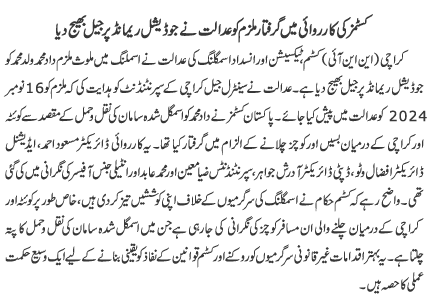 کسٹمز کی کارروائی میں گرفتار ملزم کو عدالت نے جوڈیشل ریمانڈ پر جیل بھیج دیا
کراچی (این این آئی) کسٹم، ٹیکسیشن اور انسداد اسمگلنگ کی عدالت نے اسمگلنگ میں ملوث ملزم داد محمد ولد محمد کو
جوڈیشل ریمانڈ پر جیل بھیج دیا ہے۔ عدالت نے سینٹرل جیل کراچی کے سپرنٹنڈنٹ کو ہدایت کی کہ ملزم کو 16 نومبر
2024 کو عدالت میں پیش کیا جائے۔ پاکستان کسٹمز نے داد محمد کو اسمگل شدہ سامان کی نقل و حمل کے مقصد سے کوئٹہ
اور کراچی کے درمیان بسیں اور کوچز چلانے کے الزام میں گرفتار کیا تھا۔ یہ کارروائی ڈائریکٹر مسعود احمد، ایڈیشنل
ڈائریکٹر افضال وٹو، ڈپٹی ڈائریکٹر آدرش جواہر، سپرنٹنڈنٹس ضیا معین اور محمد عابد اور انٹیلی جنس آفیسر کی نگرانی میں کی گئی
تھی۔ واضح رہے کہ کسٹم حکام نے اسمگلنگ کی سرگرمیوں کے خلاف اپنی کوششیں تیز کردی ہیں، خاص طور پر کوئٹہ اور
کراچی کے درمیان چلنے والی ان مسافر کوچز کی نگرانی کی جارہی ہے جن میں اسمگل شدہ سامان کی نقل و حمل کا پتہ
چلتا ہے۔ یہ بہتر اقدامات غیر قانونی سرگرمیوں کو روکنے اور کسٹم قوانین کے نفاذ کو یقینی بنانے کے لیے ایک وسیع حکمت
عملی کا حصہ ہیں۔